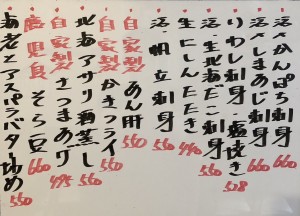 活〆かんぱち刺身 660
活〆しまあじ刺身 660
いわし刺身・塩焼き 528
活・生北海だこ刺身 550
生にしんたたき 440
活・帆立刺身 550
自家製あん肝 550
自家製かきフライ 550
北海アサリ酒蒸し 550
自家製さつまあげ 495
鹿児島そら豆 660
海老とアスパラバター炒め 550